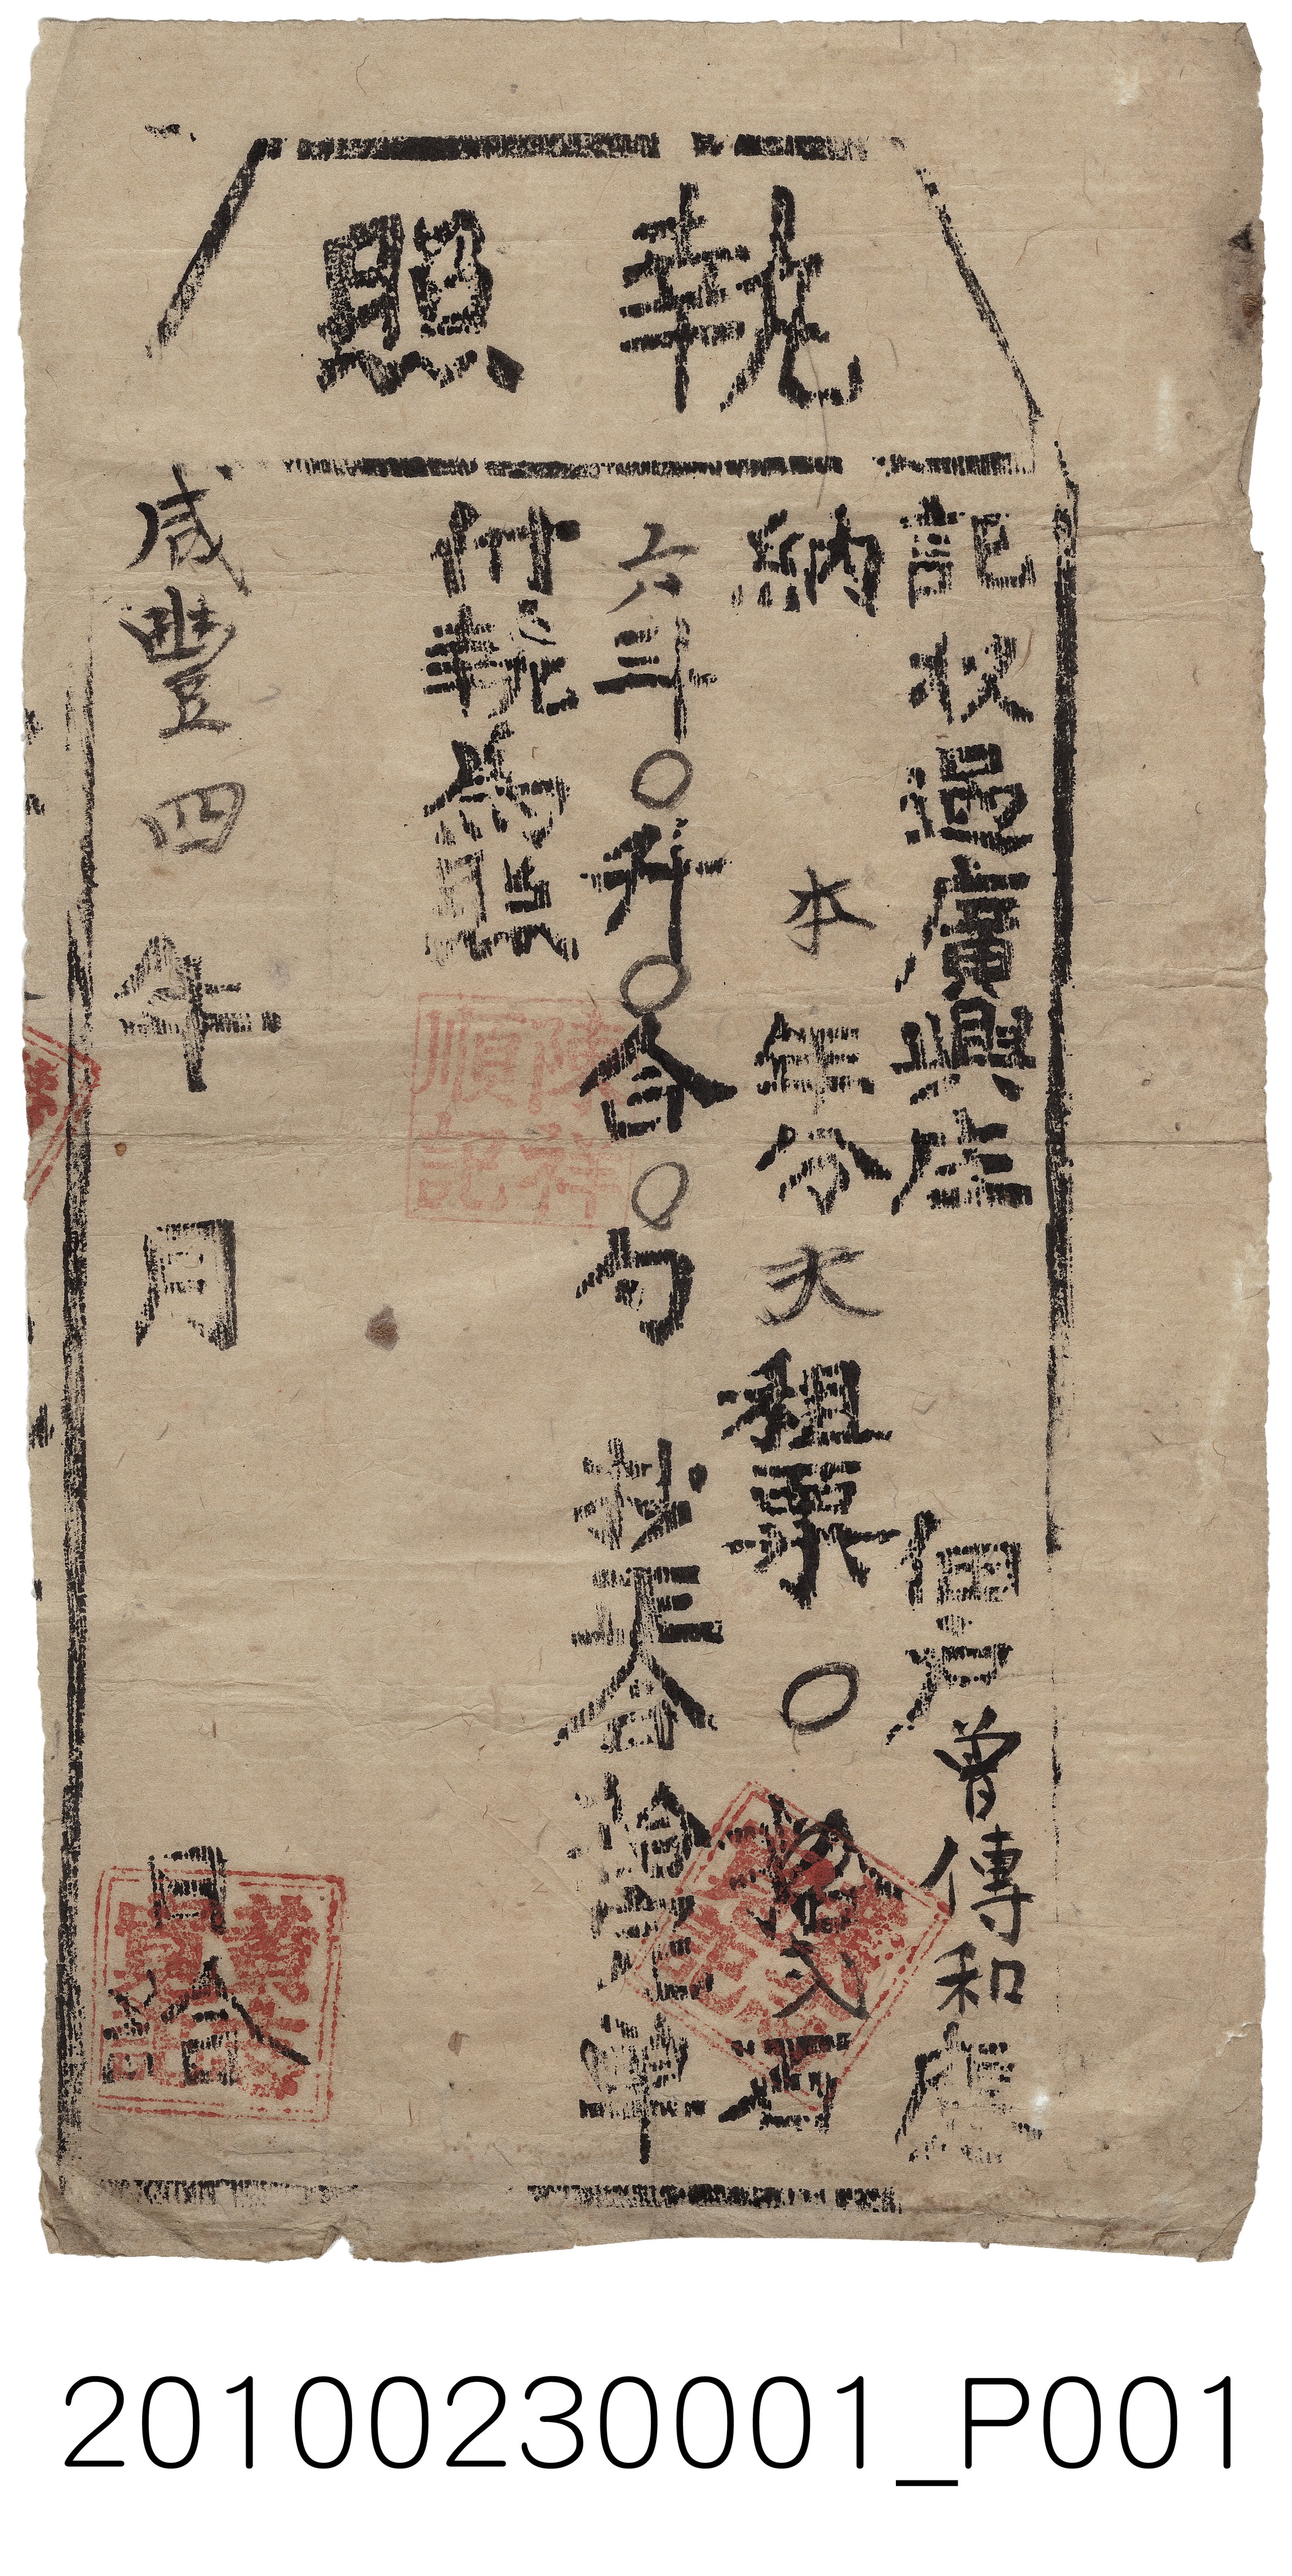 執照
記收過廣興庄佃戶曾傳和應
納本年分大租粟〇拾弍石
六斗〇升〇合〇勺抄正合給完單
付執為照
陳祥
順記
咸豐四年 月 日給
20100230001_P001